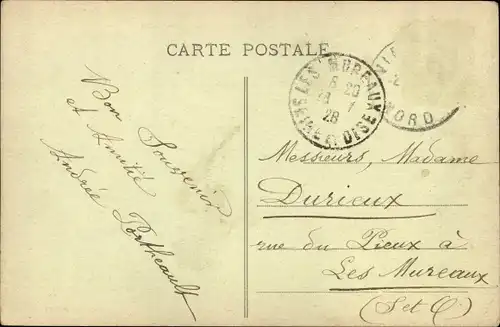 CARTE POSTALE
Bon Souvenir
et Amitié
Andrée Portheault
LES MUREAUX
6 20
18 1
28
SEINE & OISE
NORD
Messieurs, Madame
Durieux
rue du Pieux à
Les Mureaux
(S et O)